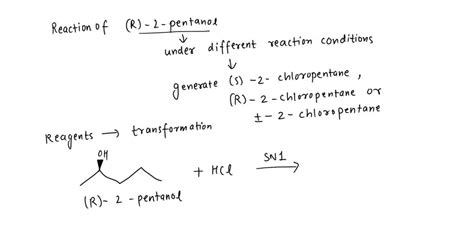 Reaction of (R)-2-pentanol
under different reaction conditions
generate (S)-2-chloropentane,
(R)-2-chloropentane or
±-2-chloropentane
Reagents → transformation
OH
+ HCl
SN1
(R)-2-pentanol